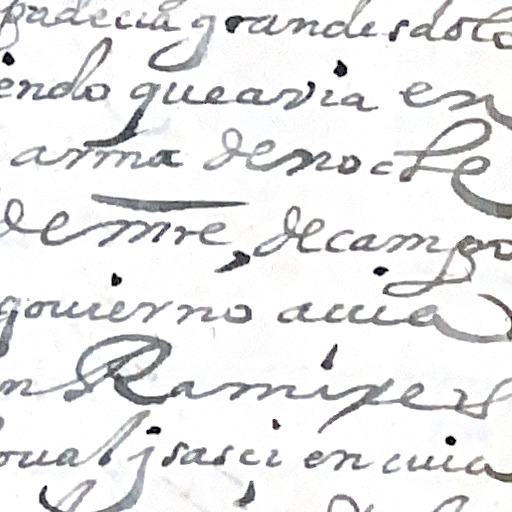 padecia grandes dolo
iendo que avia en
arma de noche
de mre de campo
govierno avia
n Ramires
oval j sasi en cuia